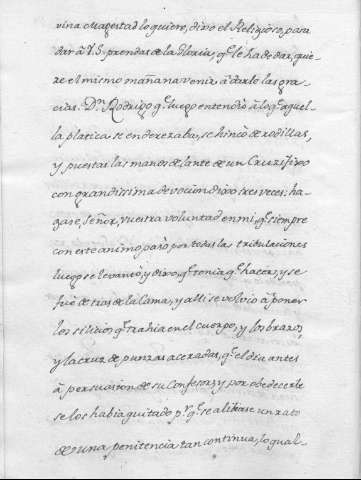 vina Magestad lo quiero, dixo el Religioso, para
dar à V.S. prendas de la Gloria, q.e le ha de dar, quie-
re el mismo mañana venir à darle las gra-
cias. D.n Rodrigo q.e luego entendiò à lo q.e aquel-
la platica se enderezaba, se hincò de rodillas,
y puestas las manos delante de un Cruzifixo
con grandissima devocion dixo tres veces: ha-
gase, Señor, vuestra voluntad en mi, q.e siempre
con este animo pasò por todas las tribulaciones
luego se levantò, y dixo, q.e tenia q.e hacer, y se
fuè detras de la Cama, y alli se volviò à poner
los silicios q.e trahia en el cuerpo, y los brazos,
y la cruz de punzas aceradas, q.e el dia antes
à persuasion de su Confesor, y por obedecerle
se los habia quitado p.r q.e se alibiase un rato
de una penitencia tan continua, lo qual